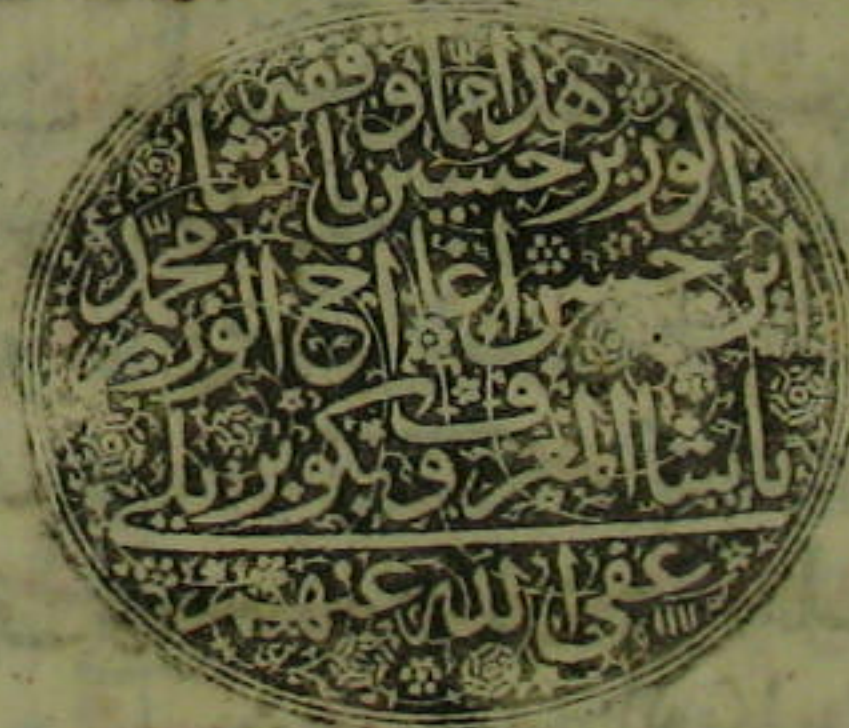 هذا مما وقفه
الوزير حسين باشا
ابن حسن اغا اخ الوزير محمد
باشا المعروف بكوبريلي
عفى الله عنهم ١١١١